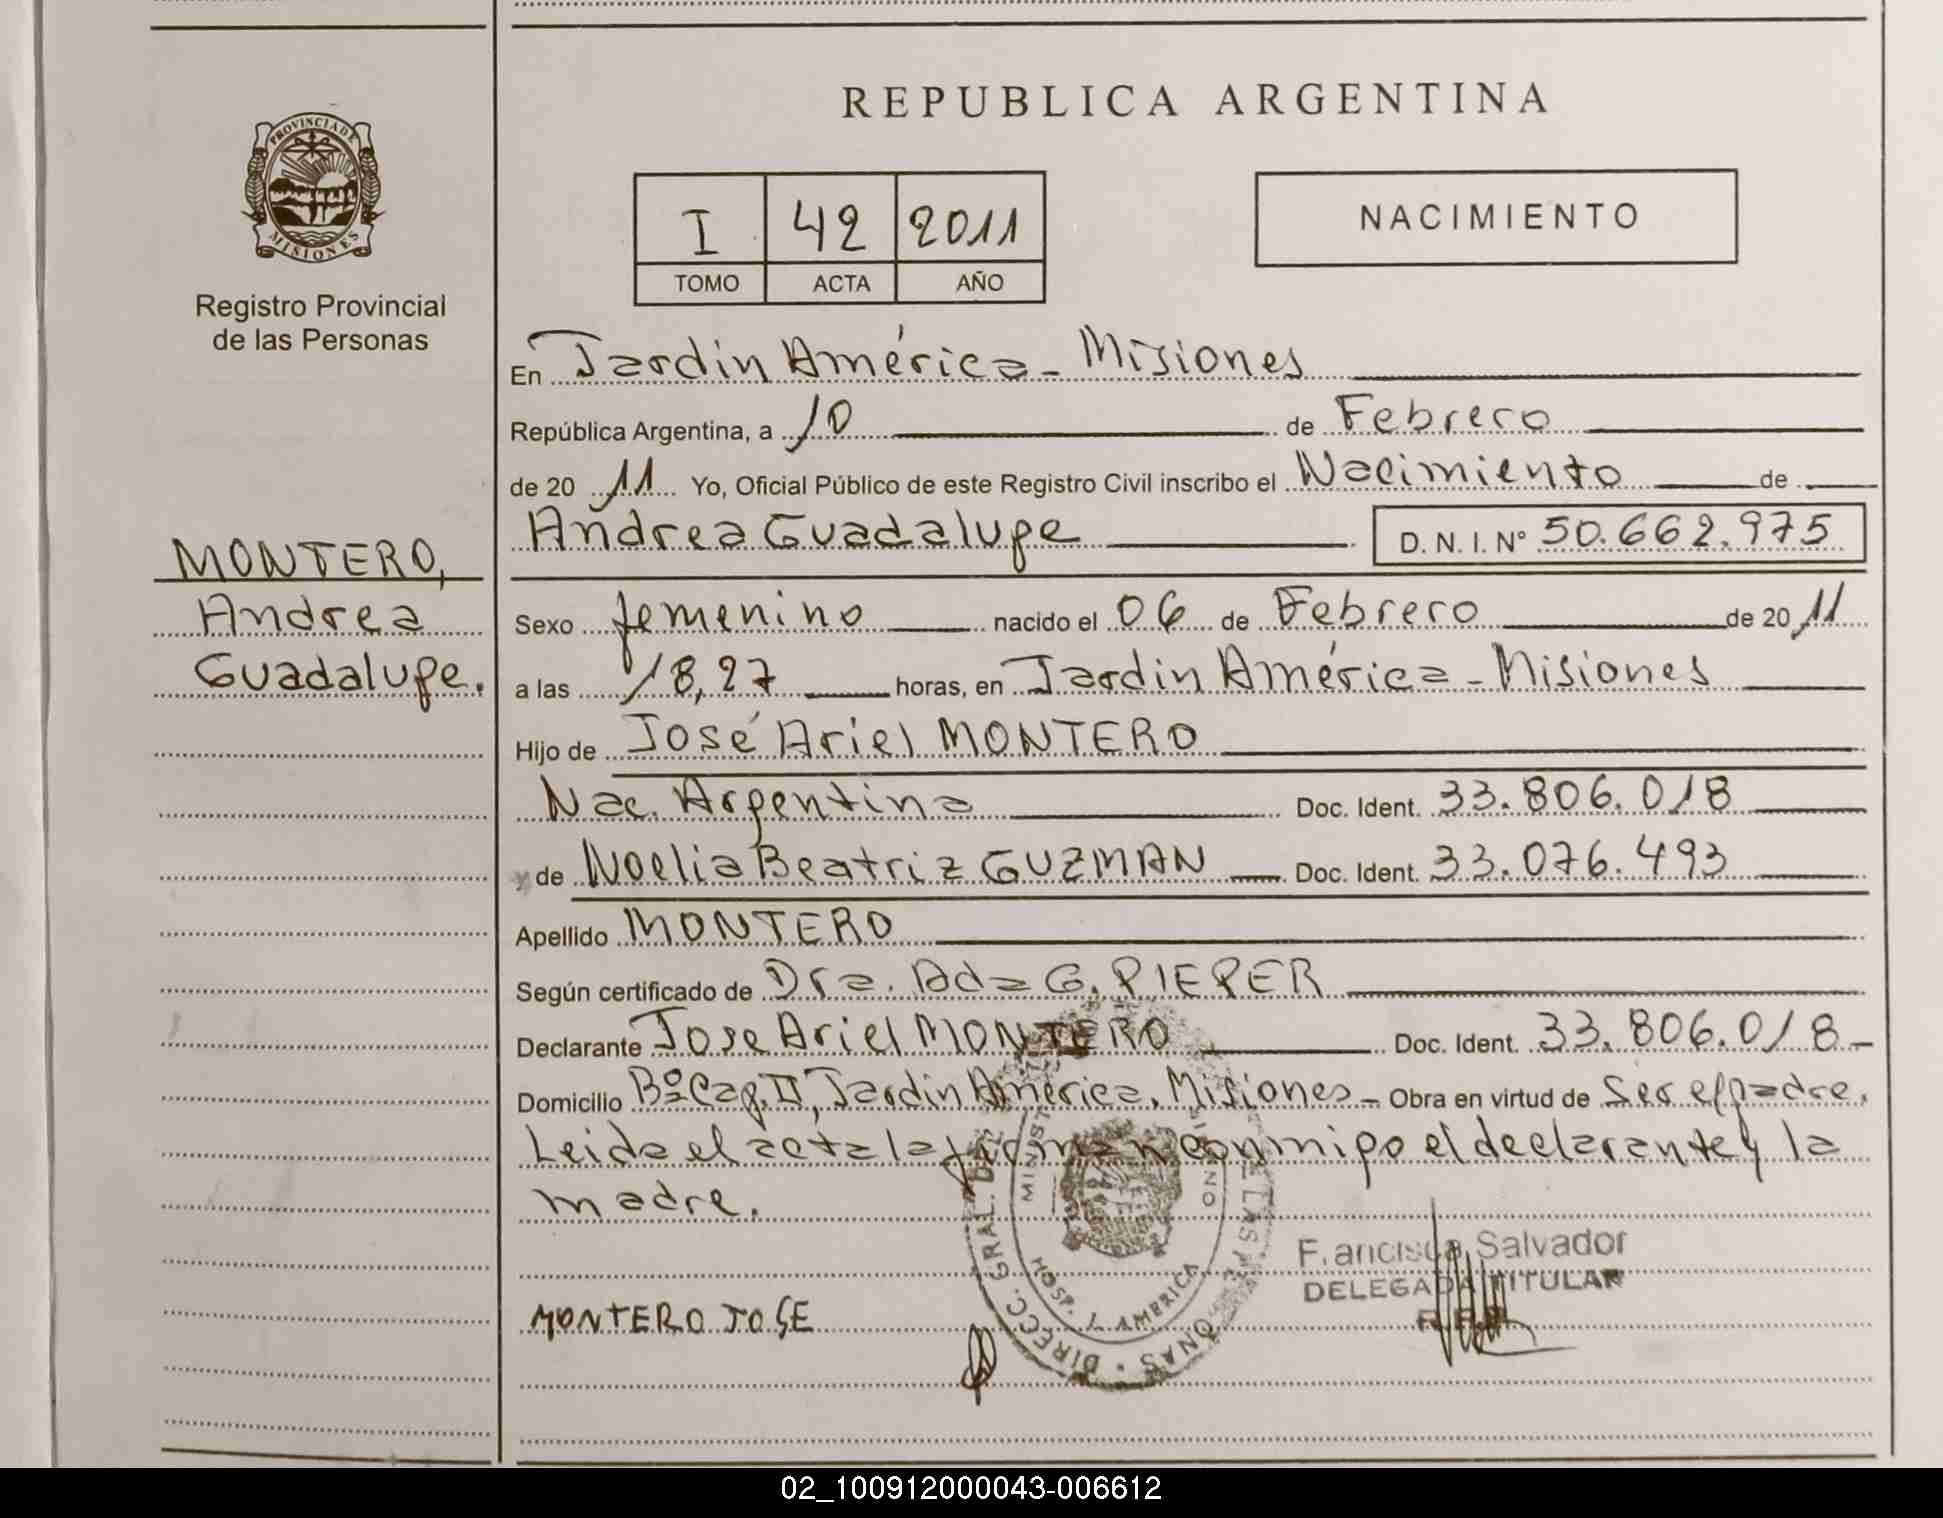 REPUBLICA ARGENTINA
PROVINCIA DE
MISIONES
Registro Provincial
de las Personas
I 42 2011
TOMO ACTA AÑO
NACIMIENTO
En Jardín América - Misiones
República Argentina, a 10 de Febrero
de 20 11 Yo, Oficial Público de este Registro Civil inscribo el Nacimiento de
Andrea Guadalupe D. N. I. N° 50.662.975
MONTERO,
Andrea
Guadalupe.
Sexo femenino nacido el 06 de Febrero de 20 11
a las 18,27 horas, en Jardín América - Misiones
Hijo de José Ariel MONTERO
Nac. Argentina Doc. Ident. 33.806.018
y de Noelia Beatriz GUZMAN Doc. Ident. 33.076.493
Apellido MONTERO
Según certificado de Dra. Ada G. PIEPER
Declarante Jose Ariel MONTERO Doc. Ident. 33.806.018
Domicilio Bº Cap. II, Jardín América. Misiones - Obra en virtud de Ser el padre.
Leida el acta la firman conmigo el declarante y la
madre.
DIRECC. GRAL. DE LAS PERSONAS
HOSP. J. AMERICA
Francisca Salvador
DELEGADA TITULAR
MONTERO JOSE
02_100912000043-006612